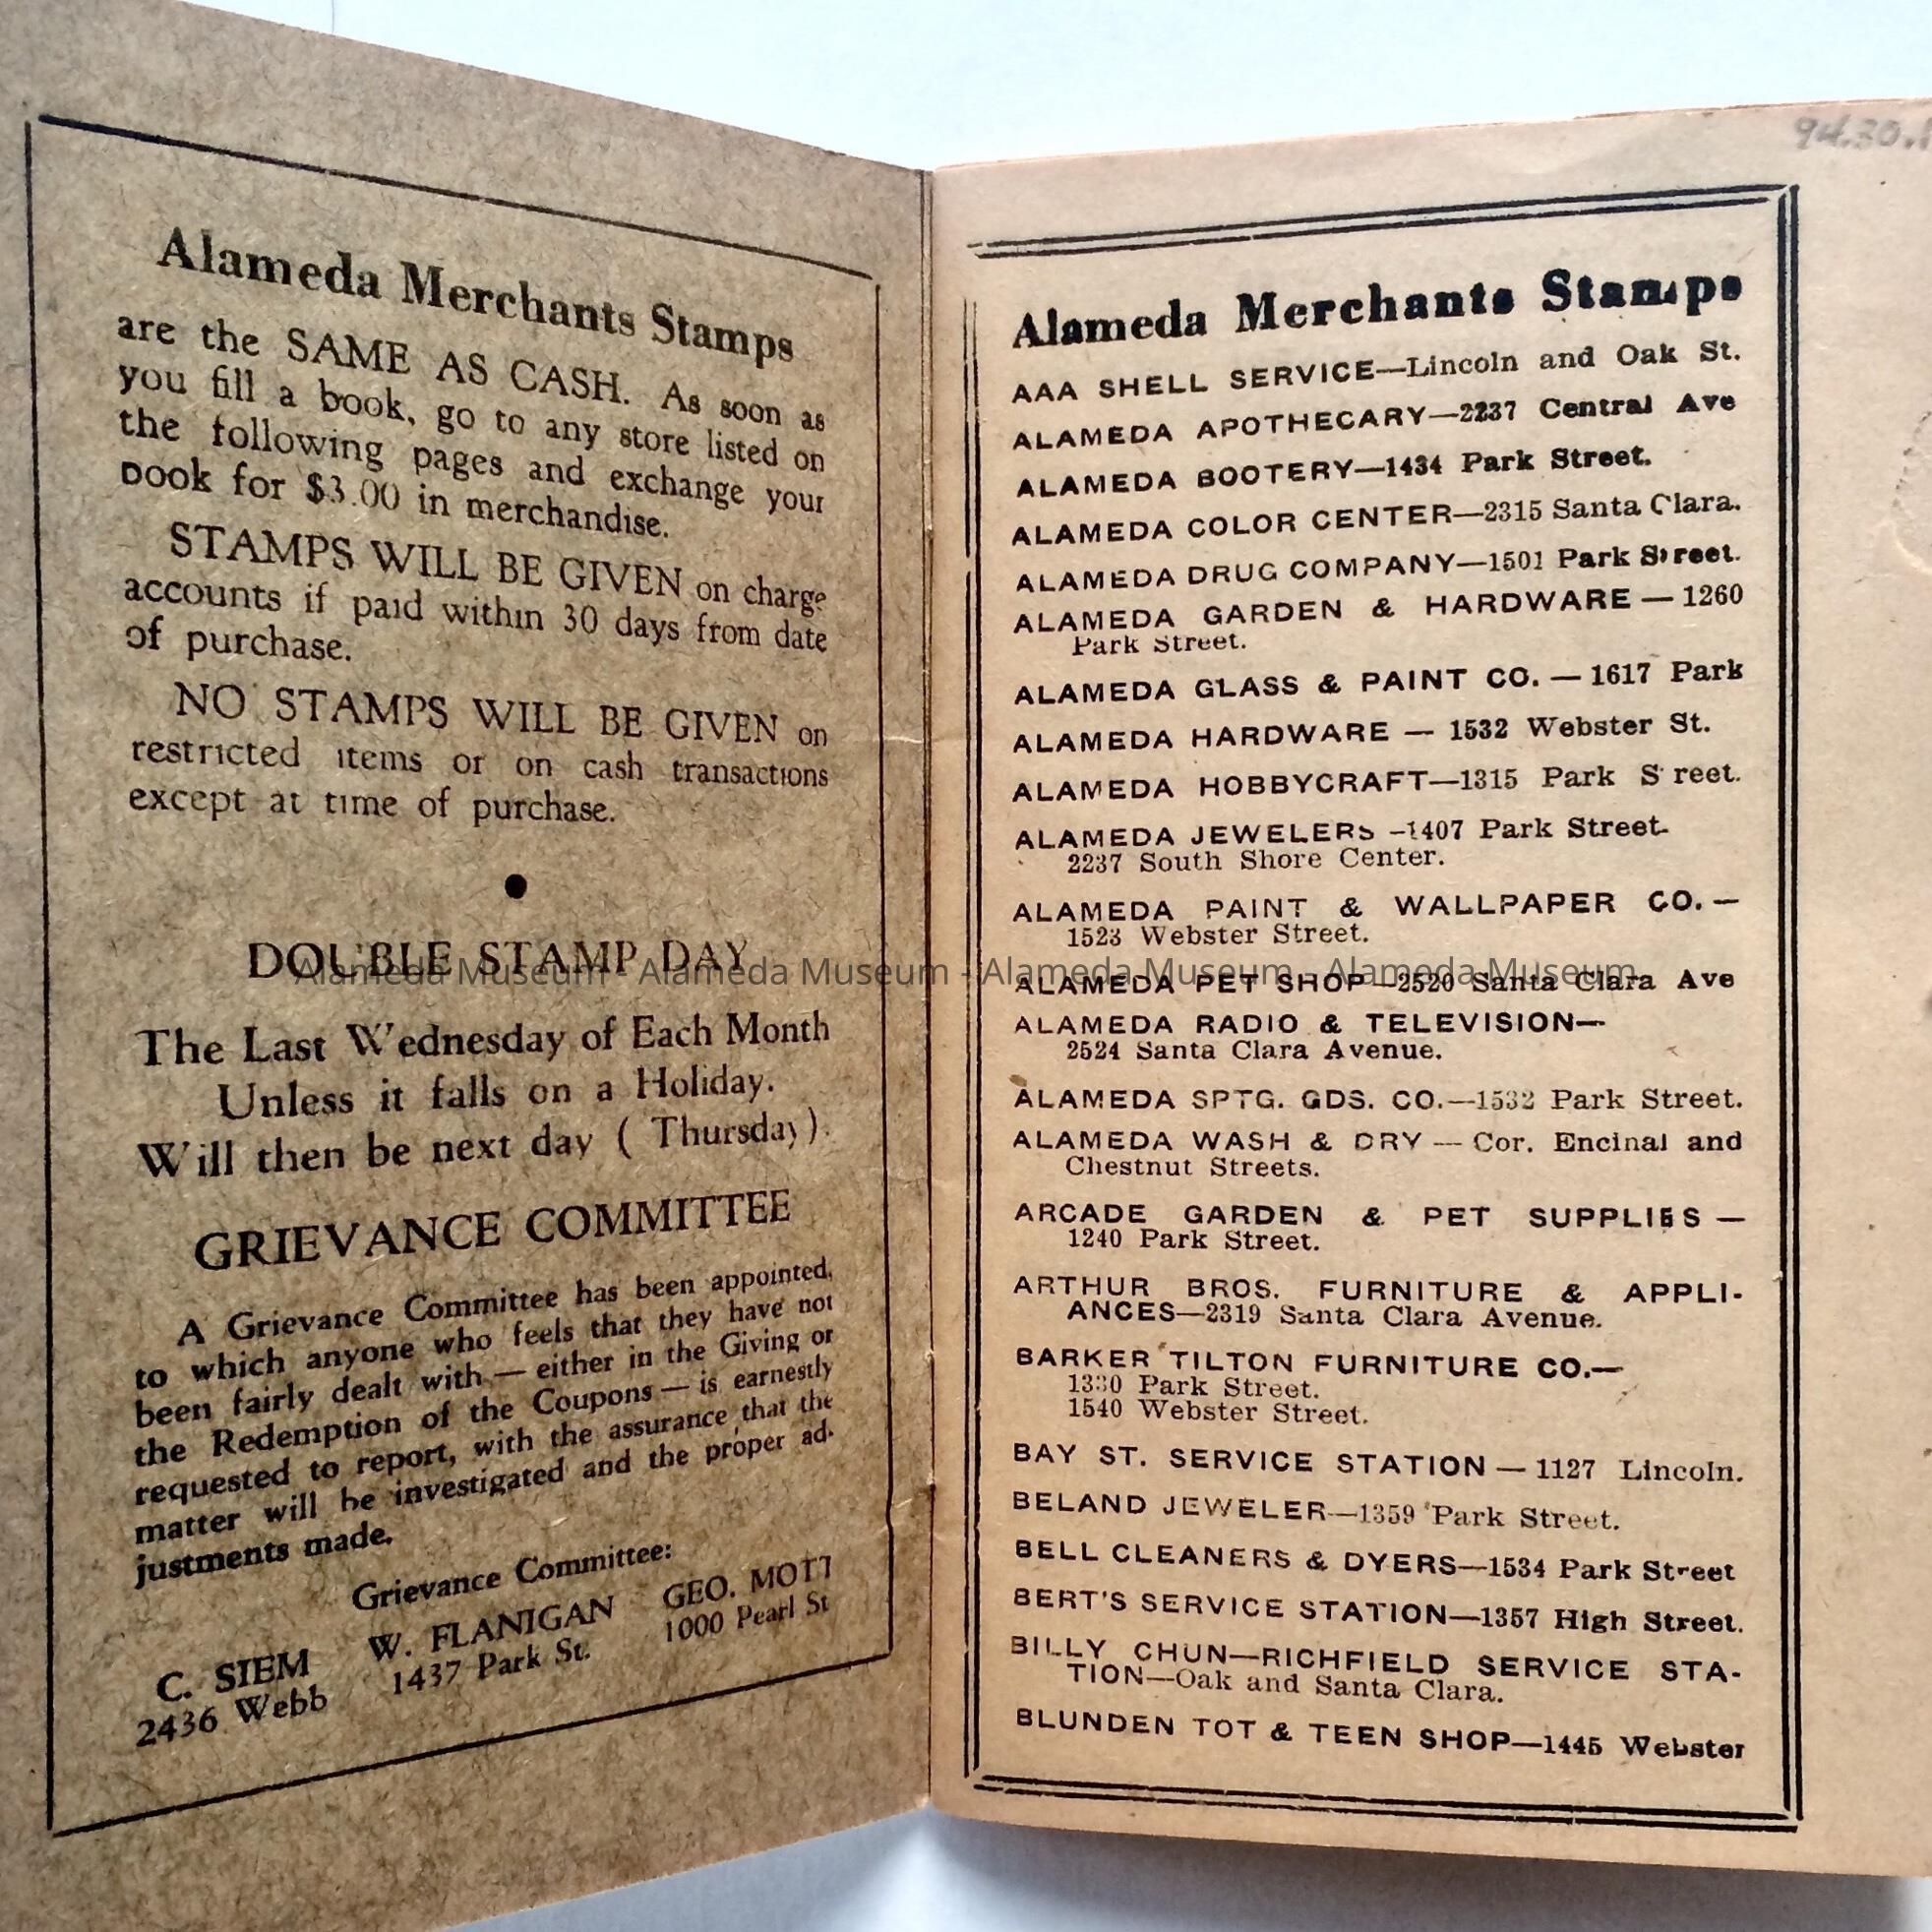 Alameda Merchants Stamps
are the SAME AS CASH. As soon as
you fill a book, go to any store listed on
the following pages and exchange your
book for $3.00 in merchandise.
STAMPS WILL BE GIVEN on charge
accounts if paid within 30 days from date
of purchase.
NO STAMPS WILL BE GIVEN on
restricted items or on cash transactions
except at time of purchase.
●
DOUBLE STAMP DAY
The Last Wednesday of Each Month
Unless it falls on a Holiday.
Will then be next day ( Thursday).
GRIEVANCE COMMITTEE
A Grievance Committee has been appointed,
to which anyone who feels that they have not
been fairly dealt with — either in the Giving or
the Redemption of the Coupons — is earnestly
requested to report, with the assurance that the
matter will be investigated and the proper ad-
justments made.
Grievance Committee:
C. SIEM W. FLANIGAN GEO. MOTT
2436 Webb 1437 Park St. 1000 Pearl St
94.30.1
Alameda Merchants Stamps
AAA SHELL SERVICE—Lincoln and Oak St.
ALAMEDA APOTHECARY—2237 Central Ave
ALAMEDA BOOTERY—1434 Park Street.
ALAMEDA COLOR CENTER—2315 Santa Clara.
ALAMEDA DRUG COMPANY—1501 Park Street.
ALAMEDA GARDEN & HARDWARE — 1260
Park Street.
ALAMEDA GLASS & PAINT CO. — 1617 Park
ALAMEDA HARDWARE — 1532 Webster St.
ALAMEDA HOBBYCRAFT—1315 Park S reet.
ALAMEDA JEWELERS –1407 Park Street.
2237 South Shore Center.
ALAMEDA PAINT & WALLPAPER CO. —
1523 Webster Street.
ALAMEDA PET SHOP—2520 Santa Clara Ave
ALAMEDA RADIO & TELEVISION—
2524 Santa Clara Avenue.
ALAMEDA SPTG. GDS. CO.—1532 Park Street.
ALAMEDA WASH & DRY — Cor. Encinal and
Chestnut Streets.
ARCADE GARDEN & PET SUPPLIES —
1240 Park Street.
ARTHUR BROS. FURNITURE & APPLI-
ANCES—2319 Santa Clara Avenue.
BARKER TILTON FURNITURE CO.—
1330 Park Street.
1540 Webster Street.
BAY ST. SERVICE STATION — 1127 Lincoln.
BELAND JEWELER—1359 Park Street.
BELL CLEANERS & DYERS—1534 Park Street
BERT'S SERVICE STATION—1357 High Street.
BILLY CHUN—RICHFIELD SERVICE STA-
TION—Oak and Santa Clara.
BLUNDEN TOT & TEEN SHOP—1445 Webster
Alameda Museum - Alameda Museum - Alameda Museum - Alameda Museum